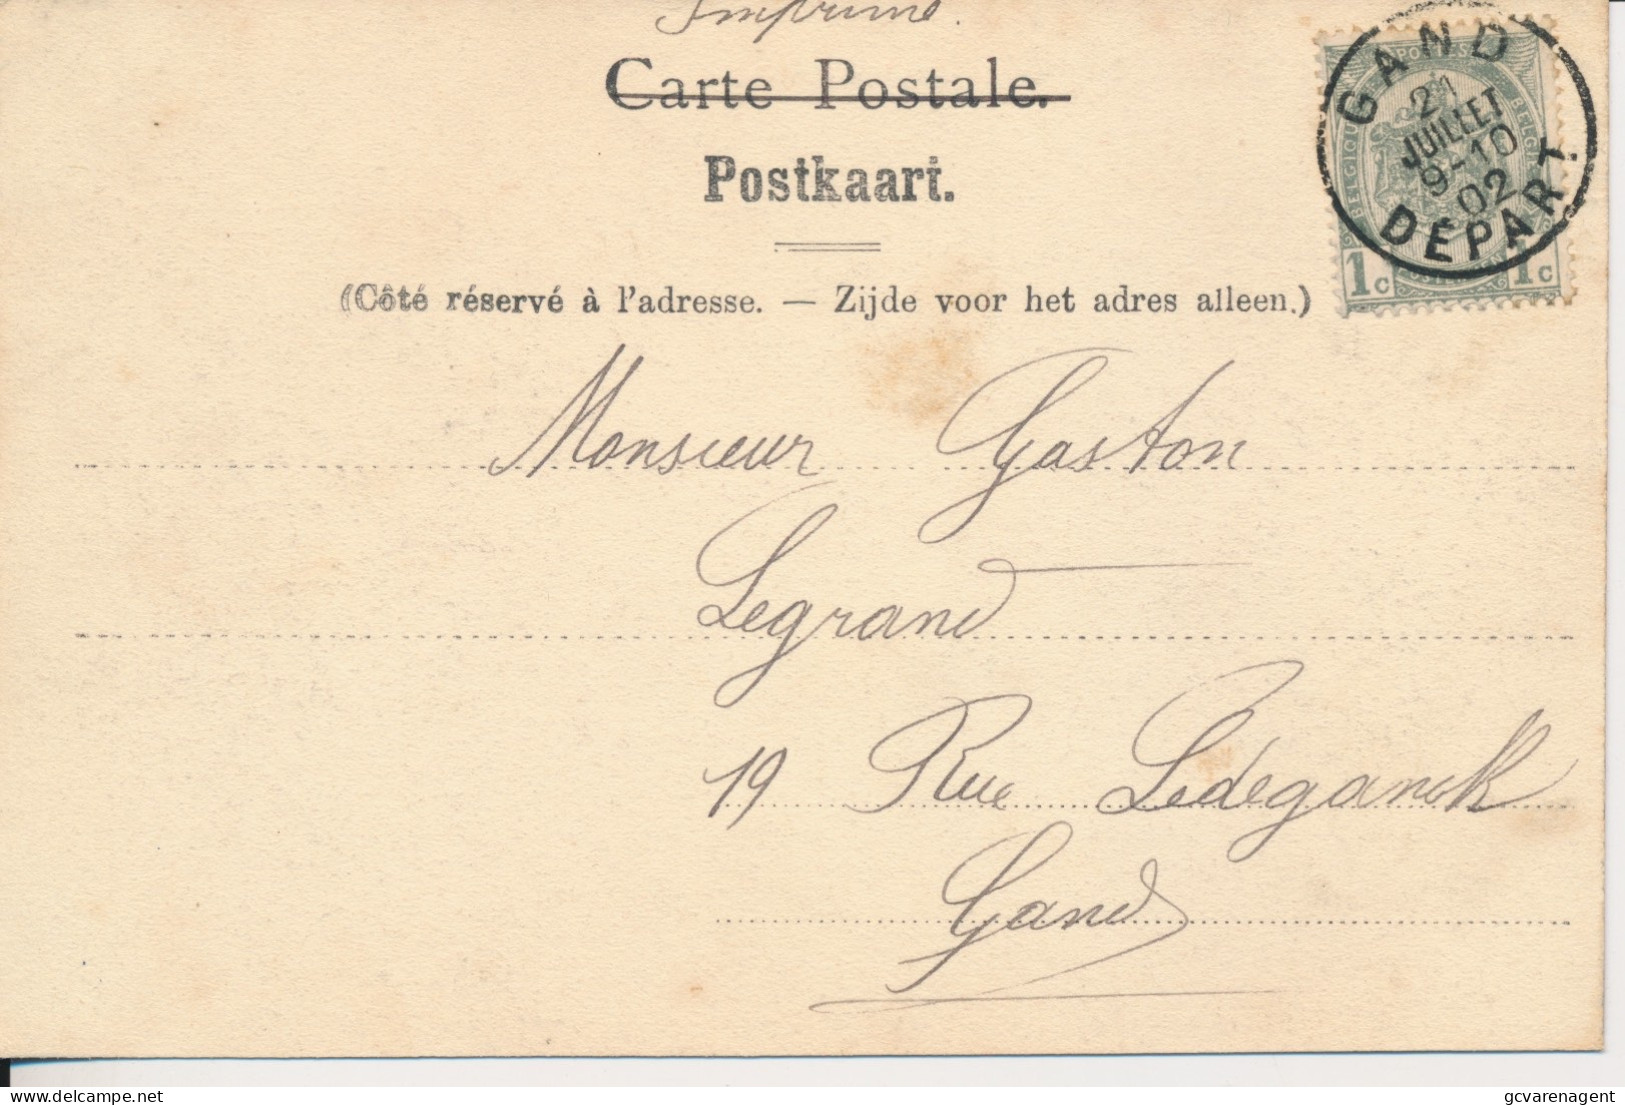 Imprimé.
Carte Postale.
Postkaart.
(Côté réservé à l'adresse. — Zijde voor het adres alleen.)
GAND
21
JUILLET
9-10
02
DÉPART
BELGIQUE
POSTES
BELGIË
1c 1c
Monsieur Gaston
Legrand
19 Rue Ledeganck
Gand
gcvarenagent